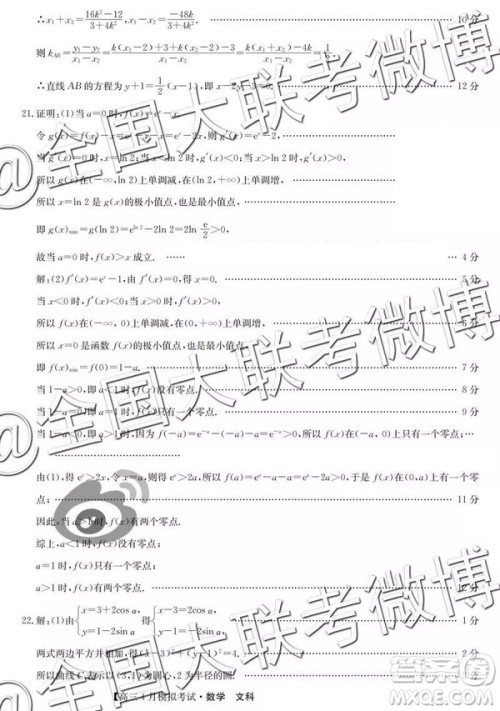 ∴x₁+x₂=(16k²-12)/(3+4k²),x₁-x₂=(-48k)/(3+4k²). 10分
则k_AB=(y₁-y₂)/(x₁-x₂)=(k(x₁-2)+3+k(x₂-2)-3)/(x₁-x₂)=(k(x₁+x₂)-4k)/(x₁-x₂)=1/2.
∴直线AB的方程为y+1=1/2(x-1),即x-2y-3=0. 12分
21.证明:(1)当a=0时,f(x)=eˣ-x.
令g(x)=
当 时,g′(x)=0,x=ln 2;当 时,g′(x)<0;当x> 时,g′(x)>0.
所以g(x)在(-∞,ln 2)上单调减,在(ln 2,+∞)上单调增,
所以x=ln 2是g(x)的极小值点,也是最小值点,
即g(x)min=g(ln 2)=e^(ln 2)-2ln 2=2ln e/2>0,
故当a=0时,f(x)>x成立. 4分
解:(2)f′(x)=eˣ-1,由f′(x)=0,得x=0.
当x<0时,f′(x)<0;当x>0时,f′(x)>0, 5分
所以f(x)在(-∞,0)上单调减,在(0,+∞)上单调增,
所以x=0是函数f(x)的极小值点,也是最小值点,
即f(x)min=f(0)=1-a. 7分
当1-a>0,即a<1时,f(x)没有零点. 8分
当1-a=0,即a=1时,f(x)只有一个零点. 9分
当1-a<0,即a>1时,因为f(-a)=e⁻ᵃ-(-a)-a=e⁻ᵃ>0,所以f(x)在(-a,0)上只有一个零点.
由(1),得eˣ>2x,令x=a,则得eᵃ>2a,所以f(a)=eᵃ-a-a=eᵃ-2a>0,于是f(x)在(0,a)上只有一个零
点. 11分
因此,当a>1时,f(x)有两个零点.
综上,a<1时,f(x)没有零点;
a=1时,f(x)只有一个零点;
a>1时,f(x)有两个零点. 12分
22.解:(1)由{x=3+2cos α, y=1-2sin α 得{x-3=2cos α, y-1=-2sin α. 1分
两式两边平方并相加,得(x-3)²+(y-1)²=4. 2分
所以曲线C表示以(3,1)为圆心,2为半径的圆.
高三4月模拟考试·数学 文科
@全国大联考微博
@全国大联考微博